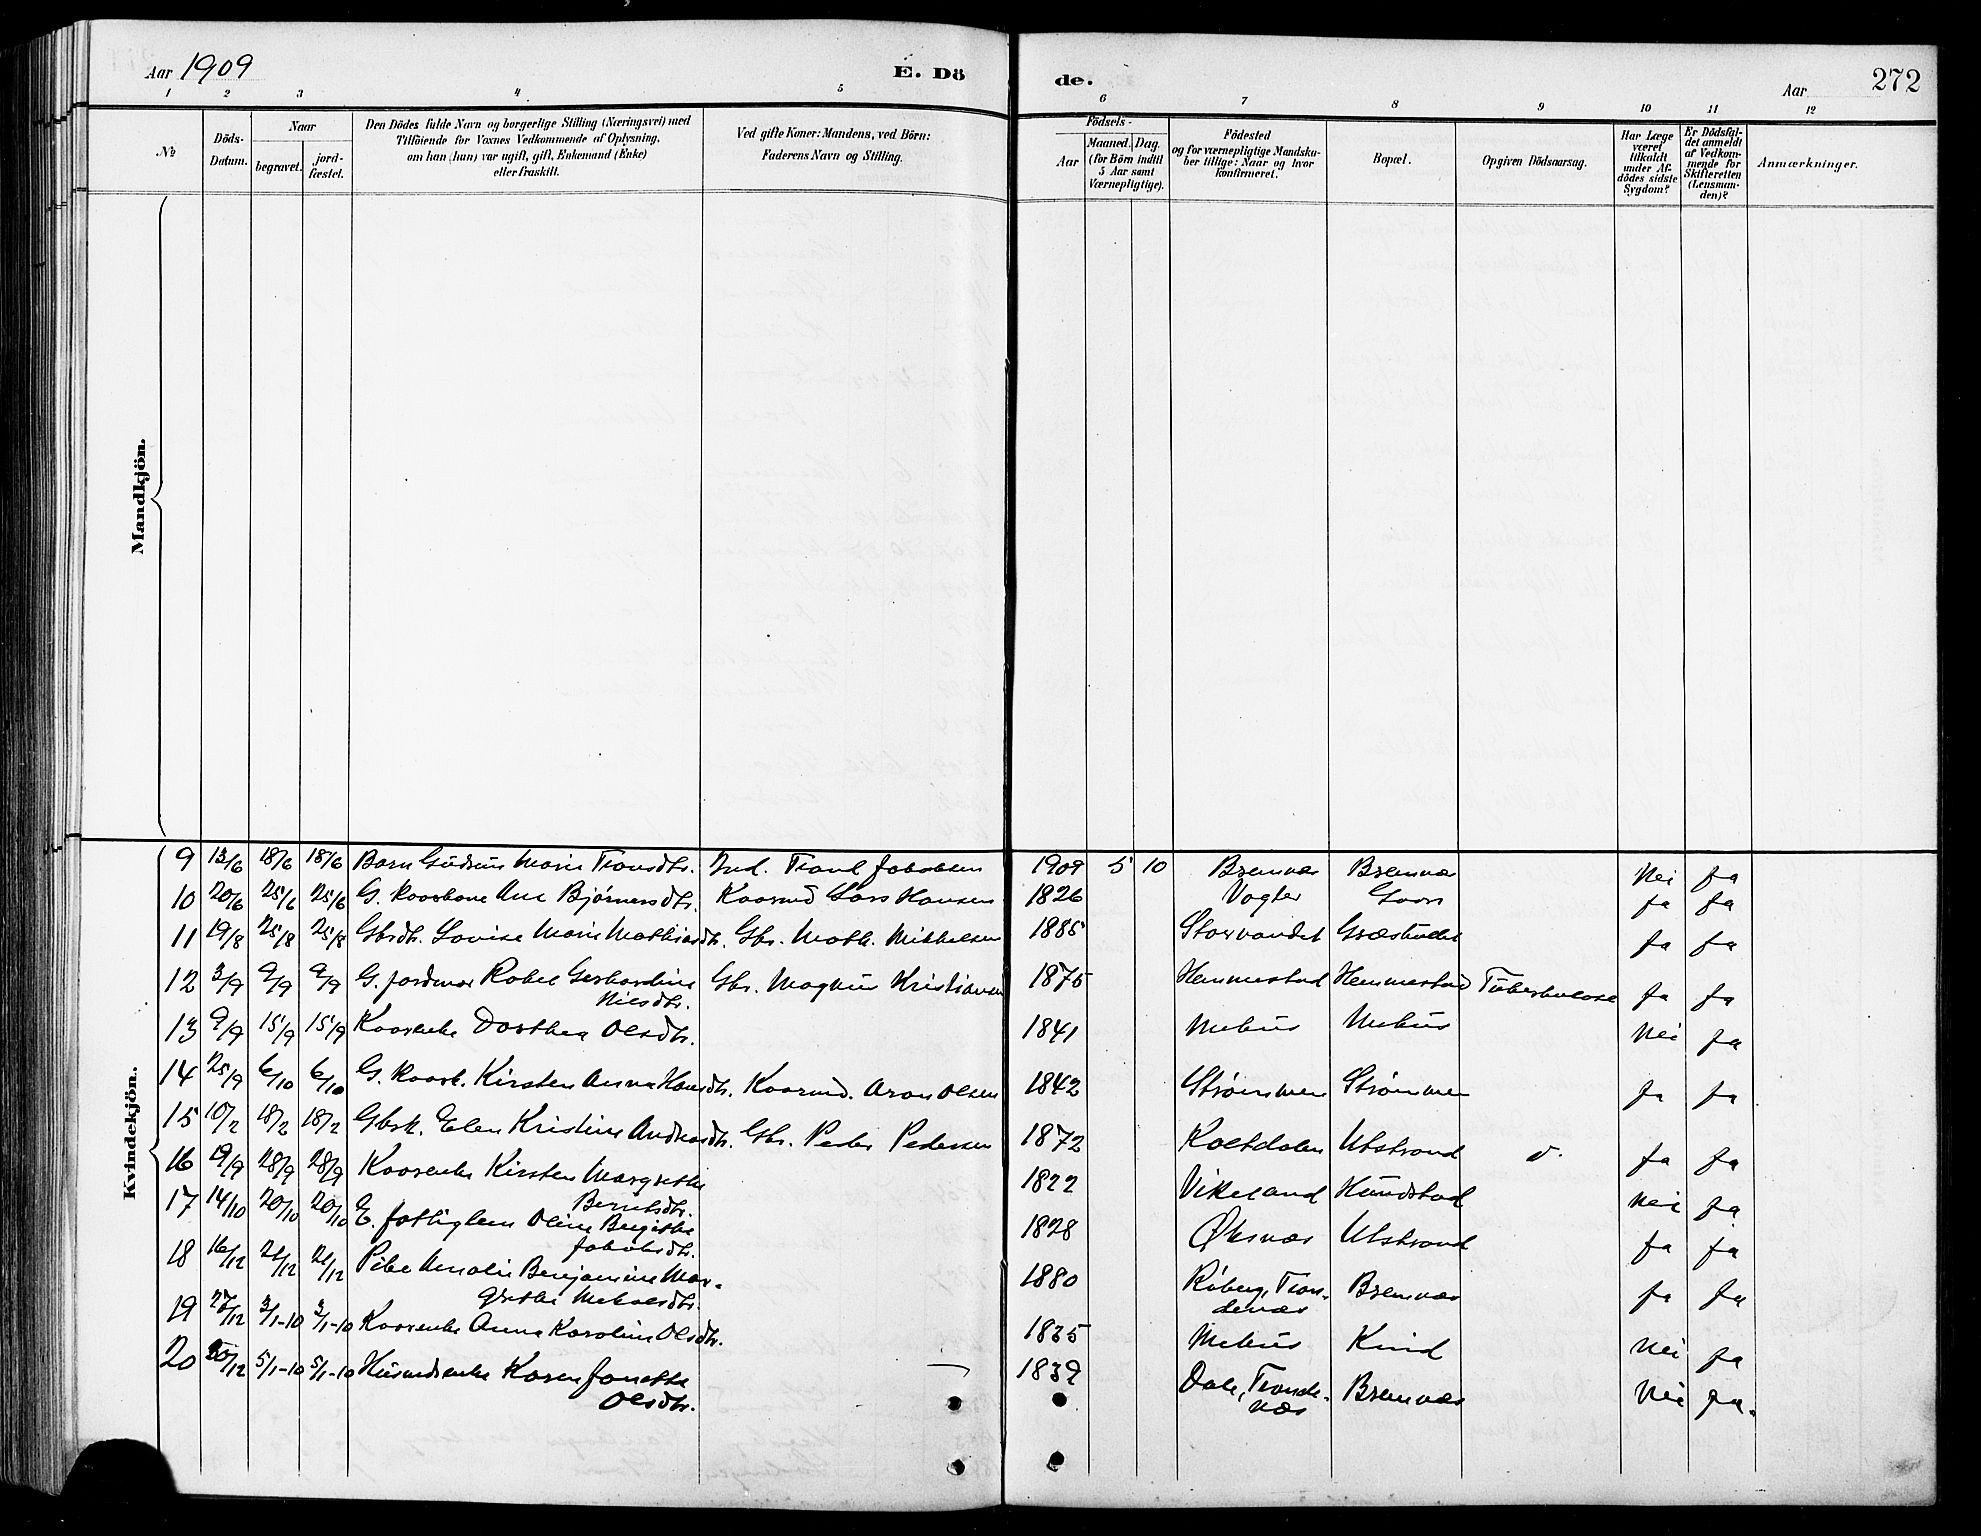 Aar 1909
E. Dö
de.
Aar
272
1 2 3 4 5 6 7 8 9 10 11 12
No
Döds-Datum.
Naar
begravet.
jord-fæstet.
Den Dödes fulde Navn og borgerlige Stilling (Næringsvei) med
Tilföiende for Voxnes Vedkommende af Oplysning,
om han (hun) var ugift, gift, Enkemand (Enke)
eller fraskilt.
Ved gifte Koner: Mandens, ved Börn:
Faderens Navn og Stilling.
Födsels-
Aar
Maaned. Dag.
(for Börn indtil
5 Aar samt
Værnepligtige).
Födested
og for værnepligtige Mandska-
ber tillige: Naar og hvor
konfirmeret.
Bopæl.
Opgiven Dödsaarsag.
Har Læge
været
tilkaldt
under Af-
dödes sidste
Sygdom?
Er Dödsfal-
det anmeldt
af Vedkom-
mende for
Skifteretten
(Lensman-
den)?
Anmærkninger.
Mandkjön.
Kvindekjön.
9 13/6 18/6 18/6 Barn Gudrun Marie Tronsdtr. Ind. Trond Jakobsen 1909 5 10 Bremnæs Bremnæs Nei Ja
10 20/6 25/6 25/6 G. kaarkone Ane Bjørnersdtr. Kaarmd Lars Hansen 1826 Vogter Ja Ja
11 19/8 25/8 25/8 Gbrdtr. Lovise Marie Mathiasdtr. Gbr. Math. Mikkelsen 1885 Storvandet Græshulet Ja Ja
12 3/9 9/9 9/9 G. jordmor Rakel Gerhardine
Nilsdtr. Gbr. Magnus Kristiansen 1875 Hemmestad Hemmestad Tuberkulose Ja Ja
13 9/9 15/9 15/9 Kaarenke Dorthea Olsdtr. 1841 Melaus Melaus Nei Ja
14 25/9 6/10 6/10 G. kaark. Kirsten Anna Hansdtr. Kaarmd. Aron Olsen 1842 Strømmen Strømmen Ja Ja
15 10/2 18/2 18/2 Gbrk. Elen Kristine Andreasdtr. Gbr. Peder Pedersen 1872 Koltdalen Utstrand Ja Ja
16 19/9 28/9 28/9 Kaarenke Kirsten Margrethe
Berntsdtr. 1822 Vikeland Hundstad Nei Ja
17 14/10 20/10 20/10 E. fattiglem Oline Bergitte
Jakobsdtr. 1828 Øksnæs Utstrand Ja Ja
18 16/12 21/12 21/12 Pike Amalie Benjamine Mar-
grethe 1880 Røberg, Tron-
denæs Bremnæs Ja Ja
19 27/12 3/1-10 3/1-10 Kaarenke Anna Karoline Olsdtr. 1835 Melaus Kind Nei Ja
20 30/12 5/1-10 5/1-10 Husmdsenke Karen Janetta
Olsdtr. — 1839 Dale, Tronde-
næs Bremnæs Nei Ja.